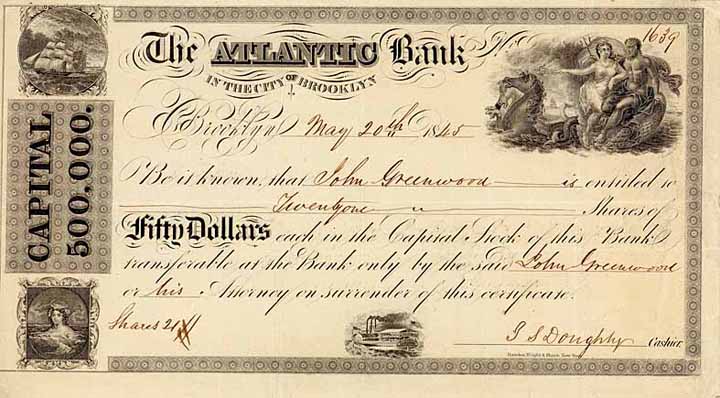 The ATLANTIC Bank No. 1639
IN THE CITY OF BROOKLYN
Brooklyn May 20th 1845
Be it known, that John Greenwood is entitled to
Twentyone " Shares of
Fifty Dollars each in the Capital Stock of this Bank
transferable at the Bank only by the said John Greenwood
or his Attorney on surrender of this certificate.
Shares 21
J S Doughty Cashier.
New York
CAPITAL
500,000.